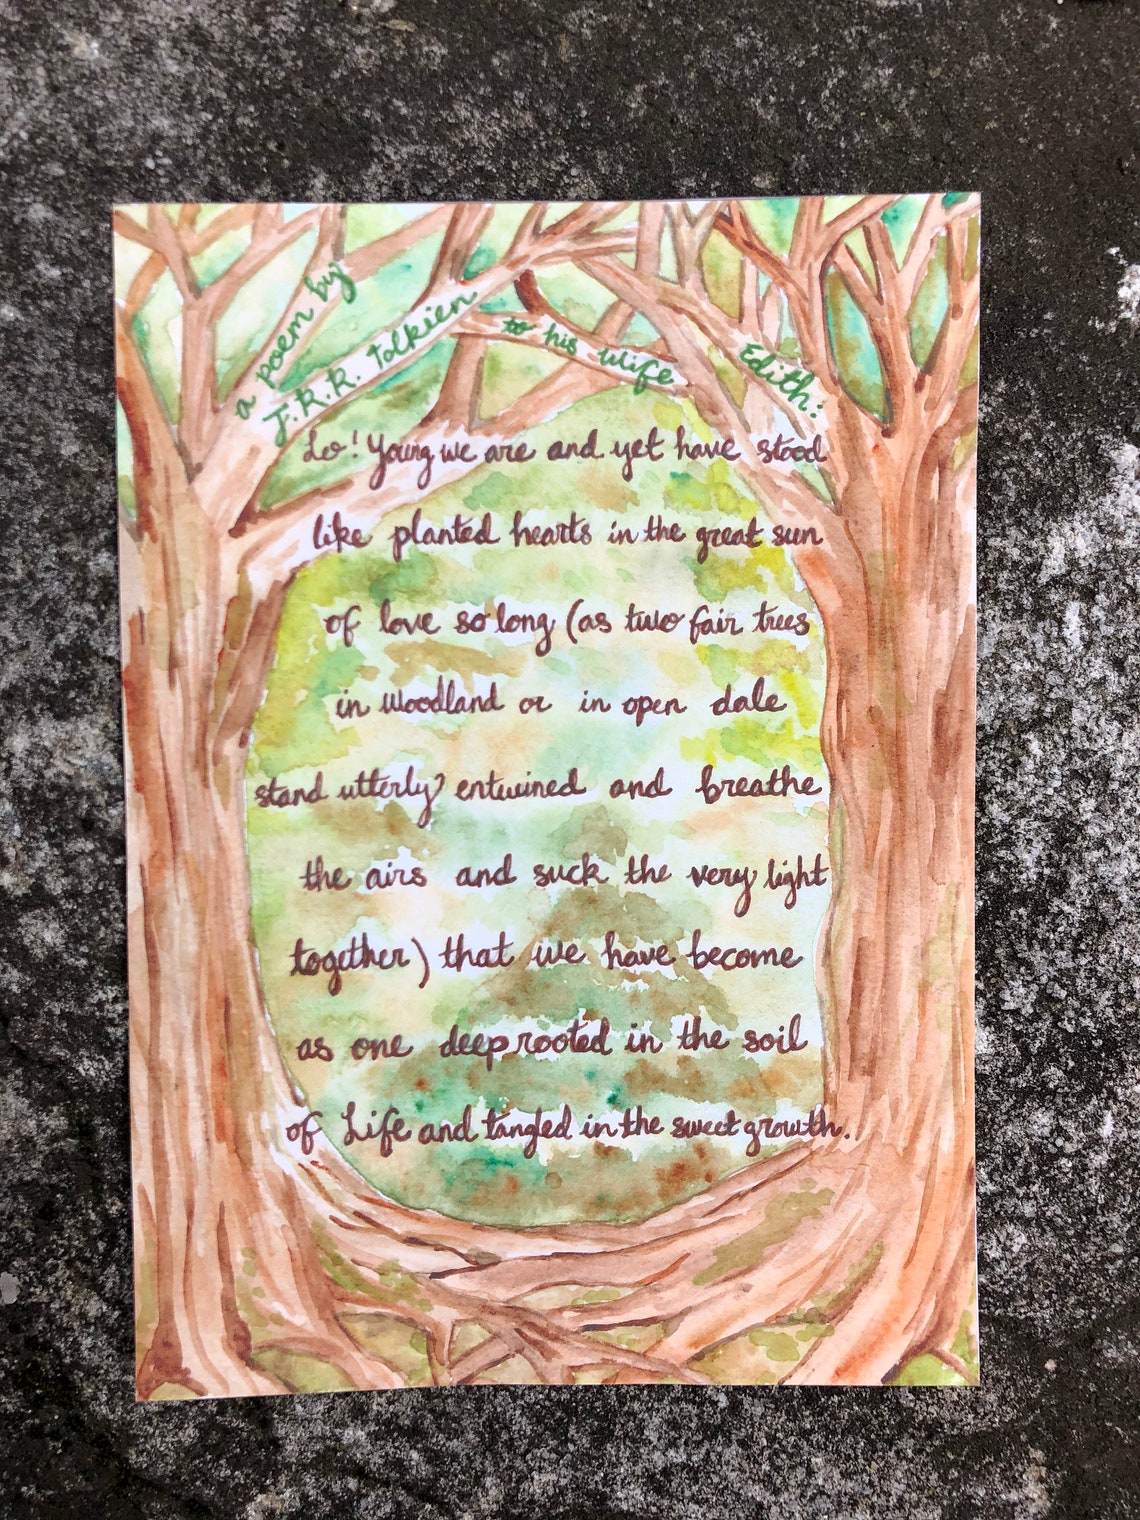 a poem by
J.R.R. Tolkien
to his wife
Edith:
Lo! Young we are and yet have stood
like planted hearts in the great sun
of love so long (as two fair trees
in woodland or in open dale
stand utterly entwined and breathe
the airs and suck the very light
together) that we have become
as one deep rooted in the soil
of Life and tangled in the sweet growth.